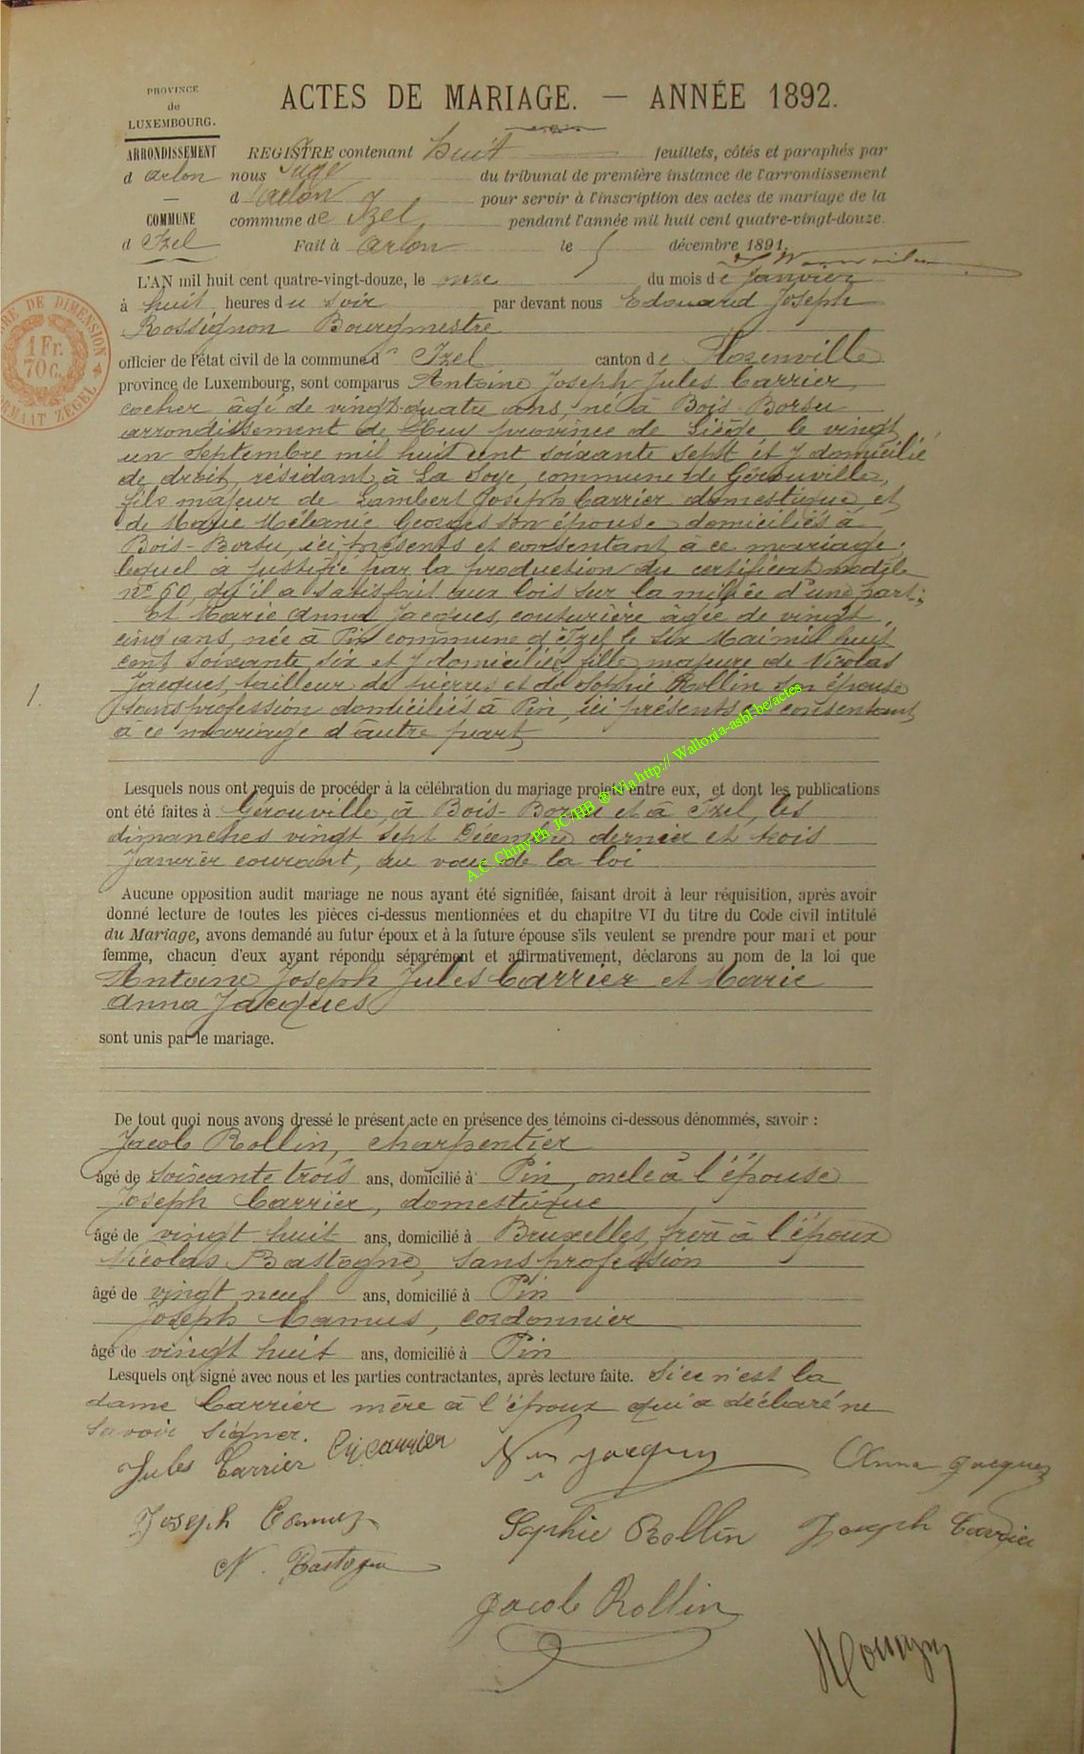 PROVINCE
de
LUXEMBOURG.
ACTES DE MARIAGE. — ANNÉE 1892.
ARRONDISSEMENT
d'Arlon
COMMUNE
d'Izel
REGISTRE contenant huit feuillets, côtés et paraphés par
nous Juge du tribunal de première instance de l'arrondissement
d'Arlon pour servir à l'inscription des actes de mariage de la
commune de Izel, pendant l'année mil huit cent quatre-vingt-douze.
Fait à Arlon le 5 décembre 1891.
1 Fr.
70 c.
L'AN mil huit cent quatre-vingt-douze, le onze du mois de Janvier
à huit heures du soir par devant nous Edouard Joseph
Rossignon Bourgmestre
officier de l'état civil de la commune d' Izel canton de Florenville
province de Luxembourg, sont comparus Antoine Joseph Jules Carrier,
cocher âgé de vingt-quatre ans, né à Bois Borsu
arrondissement de Huy province de Liège le vingt
un Septembre mil huit cent soixante sept et y domicilié
de droit, résidant à La Soye, commune de Gérouville,
fils majeur de Lambert Joseph Carrier domestique et
de Marie Mélanie Georges son épouse domiciliés à
Bois-Borsu, ici présents et consentant à ce mariage;
lequel a justifié par la production du certificat modèle
n° 60, qu'il a satisfait aux lois sur la milice d'une part;
Et Marie Anna Jacques, couturière âgée de vingt
cinq ans, née à Pin commune d'Izel le six Mai mil huit
cent soixante six et y domiciliée fille majeure de Nicolas
1.
Jacques, tailleur de pierres et de Sophie Rollin son épouse
sans profession domiciliés à Pin, ici présents et consentant
à ce mariage d'autre part
Lesquels nous ont requis de procéder à la célébration du mariage projeté entre eux, et dont les publications
ont été faites à Gérouville, à Bois-Borsu et à Izel, les
dimanches vingt sept Décembre dernier et trois
Janvier courant, au vœu de la loi
A.C. Chiny Ph. JC/HB ® Via http:// Wallonia-asbl.be/actes
Aucune opposition audit mariage ne nous ayant été signifiée, faisant droit à leur réquisition, après avoir
donné lecture de toutes les pièces ci-dessus mentionnées et du chapitre VI du titre du Code civil intitulé
du Mariage, avons demandé au futur époux et à la future épouse s'ils veulent se prendre pour mari et pour
femme, chacun d'eux ayant répondu séparément et affirmativement, déclarons au nom de la loi que
Antoine Joseph Jules Carrier et Marie
Anna Jacques
sont unis par le mariage.
De tout quoi nous avons dressé le présent acte en présence des témoins ci-dessous dénommés, savoir :
Jacob Rollin, charpentier
âgé de soixante trois ans, domicilié à Pin, oncle à l'épouse
Joseph Carrier, domestique
âgé de vingt huit ans, domicilié à Bruxelles, frère à l'époux
Nicolas Bastogne, sans profession
âgé de vingt neuf ans, domicilié à Pin
Joseph Camus, cordonnier
âgé de vingt huit ans, domicilié à Pin
Lesquels ont signé avec nous et les parties contractantes, après lecture faite. Si ce n'est la
dame Carrier mère à l'époux qui a déclaré ne
savoir signer.
Jules Carrier Carrier Jacques Anna Jacques
Joseph Camus Sophie Rollin Joseph Carrier
N. Bastogne
Jacob Rollin